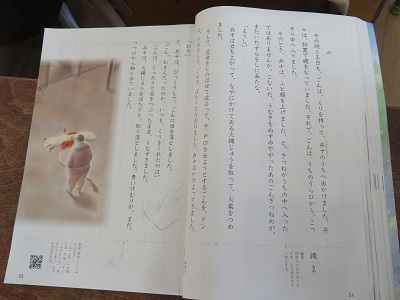 六
その明くる日も、ごんは、くりを持って、兵十のうちへ出かけました。兵
十は、物置で縄をなっていました。それで、ごんは、うちのうら口から、こっ
そり中へ入りました。
そのとき、兵十は、ふと顔を上げました。と、きつねがうちの中へ入った
ではありませんか。こないだ、うなぎをぬすみやがったあのごんぎつねめが、
またいたずらをしに来たな。
「ようし。」
兵十は立ち上がって、なやにかけてある火縄じゅうを取って、火薬をつめ
ました。
そして、足音をしのばせて近よって、今、戸口を出ようとするごんを、ドン
「おや。」
と、兵十は、びっくりして、ごんに目を落としました。
「ごん、おまいだったのか、いつも、くりをくれたのは。」
ごんは、ぐったりと目をつぶったまま、うなずきました。
兵十は、火縄じゅうをばたりと、取り落としました。青いけむりが、まだ、
つつ口から細く出ていました。
縄
なわ
54